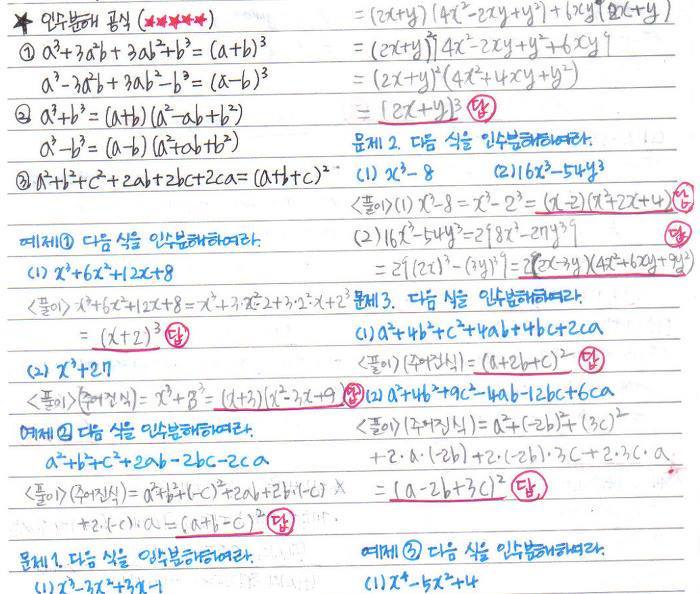 ★ 인수분해 공식 (★★★★★)
① a³+3a²b+3ab²+b³=(a+b)³
a³-3a²b+3ab²-b³=(a-b)³
② a³+b³=(a+b)(a²-ab+b²)
a³-b³=(a-b)(a²+ab+b²)
③ a²+b²+c²+2ab+2bc+2ca=(a+b+c)²
예제① 다음 식을 인수분해하여라.
(1) x³+6x²+12x+8
<풀이> x³+6x²+12x+8=x³+3·x²·2+3·2²·x+2³
=(x+2)³ 답
(2) x³+27
<풀이>(주어진식)=x³+3³=(x+3)(x²-3x+9) 답
예제② 다음 식을 인수분해하여라.
a²+b²+c²+2ab-2bc-2ca
<풀이>(주어진식)=a²+b²+(-c)²+2ab+2b·(-c)
+2·(-c)·a=(a+b-c)² 답
문제1. 다음 식을 인수분해하여라.
(1) x³-3x²+3x-1
=(2x+y)(4x²-2xy+y²)+6xy(2x+y)
=(2x+y){4x²-2xy+y²+6xy}
=(2x+y)(4x²+4xy+y²)
=(2x+y)³ 답
문제2. 다음 식을 인수분해하여라.
(1) x³-8 (2) 16x³-54y³
<풀이>(1) x³-8=x³-2³=(x-2)(x²+2x+4) 답
(2) 16x³-54y³=2{8x³-27y³} 답
=2{(2x)³-(3y)³}=2(2x-3y)(4x²+6xy+9y²)
문제3. 다음 식을 인수분해하여라.
(1) a²+4b²+c²+4ab+4bc+2ca
<풀이>(주어진식)=(a+2b+c)² 답
(2) a²+4b²+9c²-4ab-12bc+6ca
<풀이>(주어진식)=a²+(-2b)²+(3c)²
+2·a·(-2b)+2·(-2b)·3c+2·3c·a
=(a-2b+3c)² 답
예제③ 다음 식을 인수분해하여라.
(1) x⁴-5x²+4